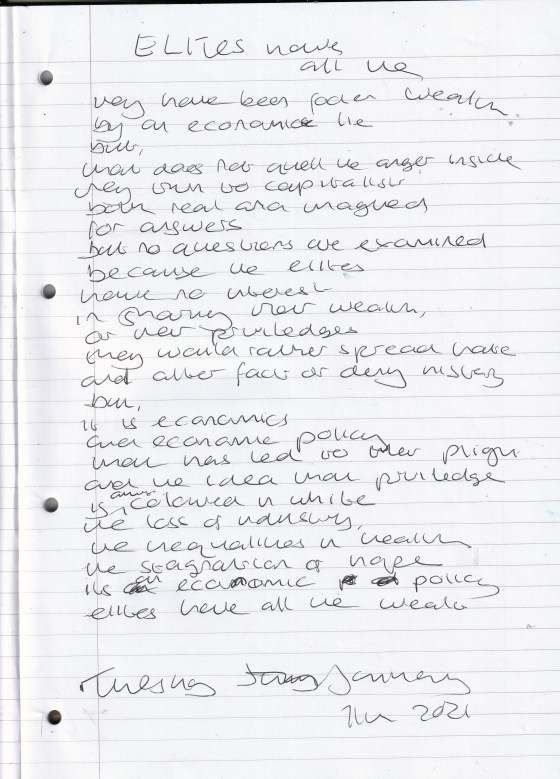 ELITES have
all the
they have been fooled wealth
by an economic lie
but,
that does not quell the anger inside
they turn to capitalists
both real and imagined
for answers
but no questions are examined
because the elites
have no interest
in sharing their wealth,
or their priviledges
they would rather spread hate
and alter fact or deny history
but,
it is economics
and economic policy
that has led to their plight
and the idea that priviledge
is always coloured in white
the loss of industry,
the inequalities in health
the stagnation of hope
its an economic policy
elites have all the wealth
Tuesday January
2021